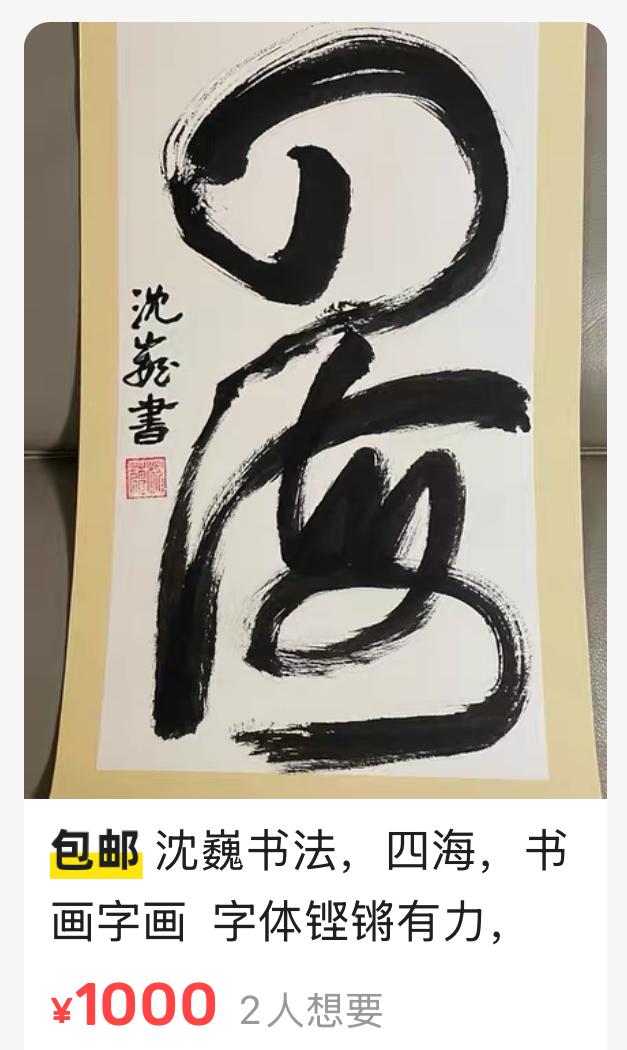 四海
沈巍書
包邮 沈巍书法，四海，书
画字画 字体铿锵有力，
¥1000 2人想要